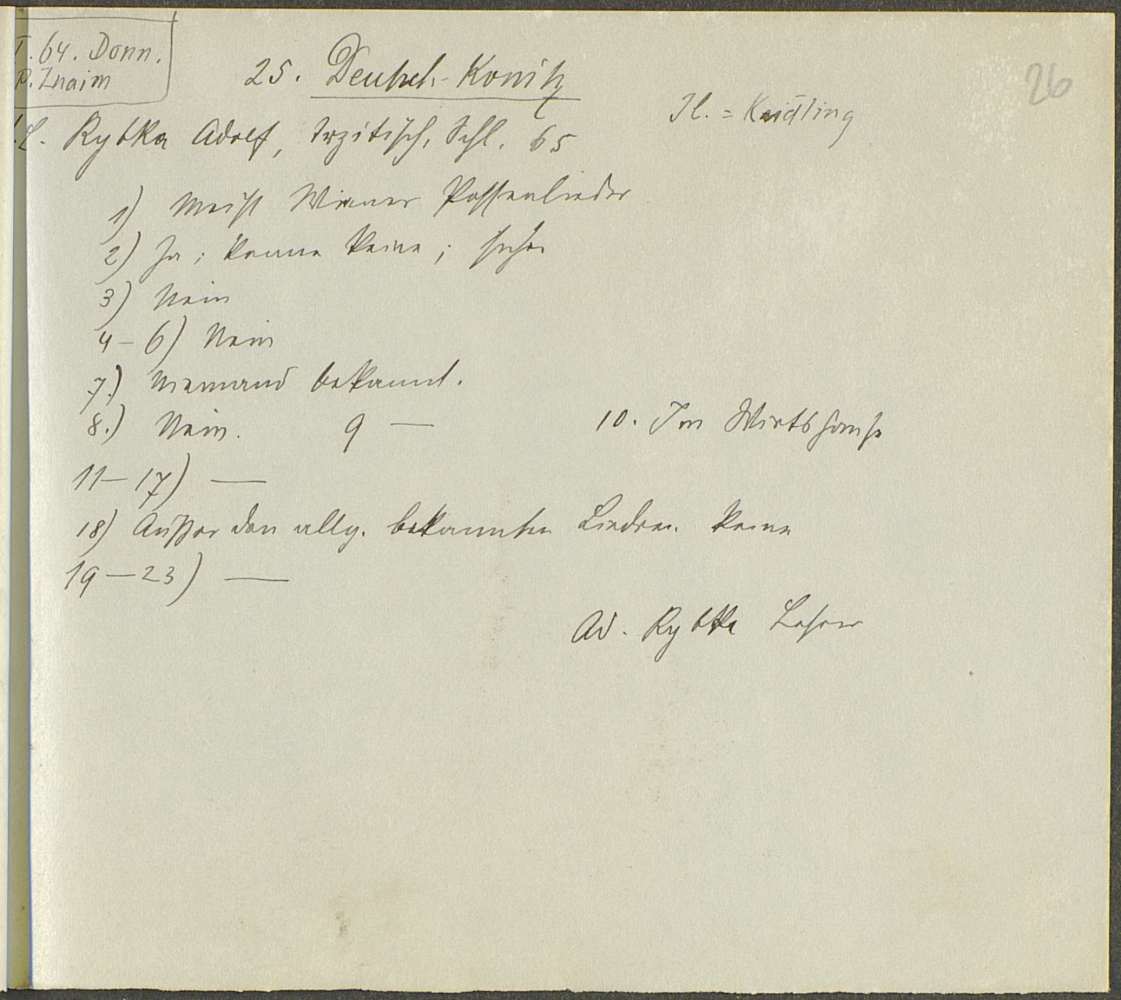 T. 64. Donn.
P. Znaim
26
25. Deutsch-Konitz
H. = Kaidling
L. Rybka Adolf, Schl. 65
1) Meist Wiener Possenlieder
2) Ja; kenne keine;
3) Nein
4-6) Nein
7) Niemand bekannt.
8.) Nein. 9 — 10. Im Wirtshause
11-17) —
18) Außer den allg. bekannten Liedern keine
19-23) —
Ad. Rybka Lehrer